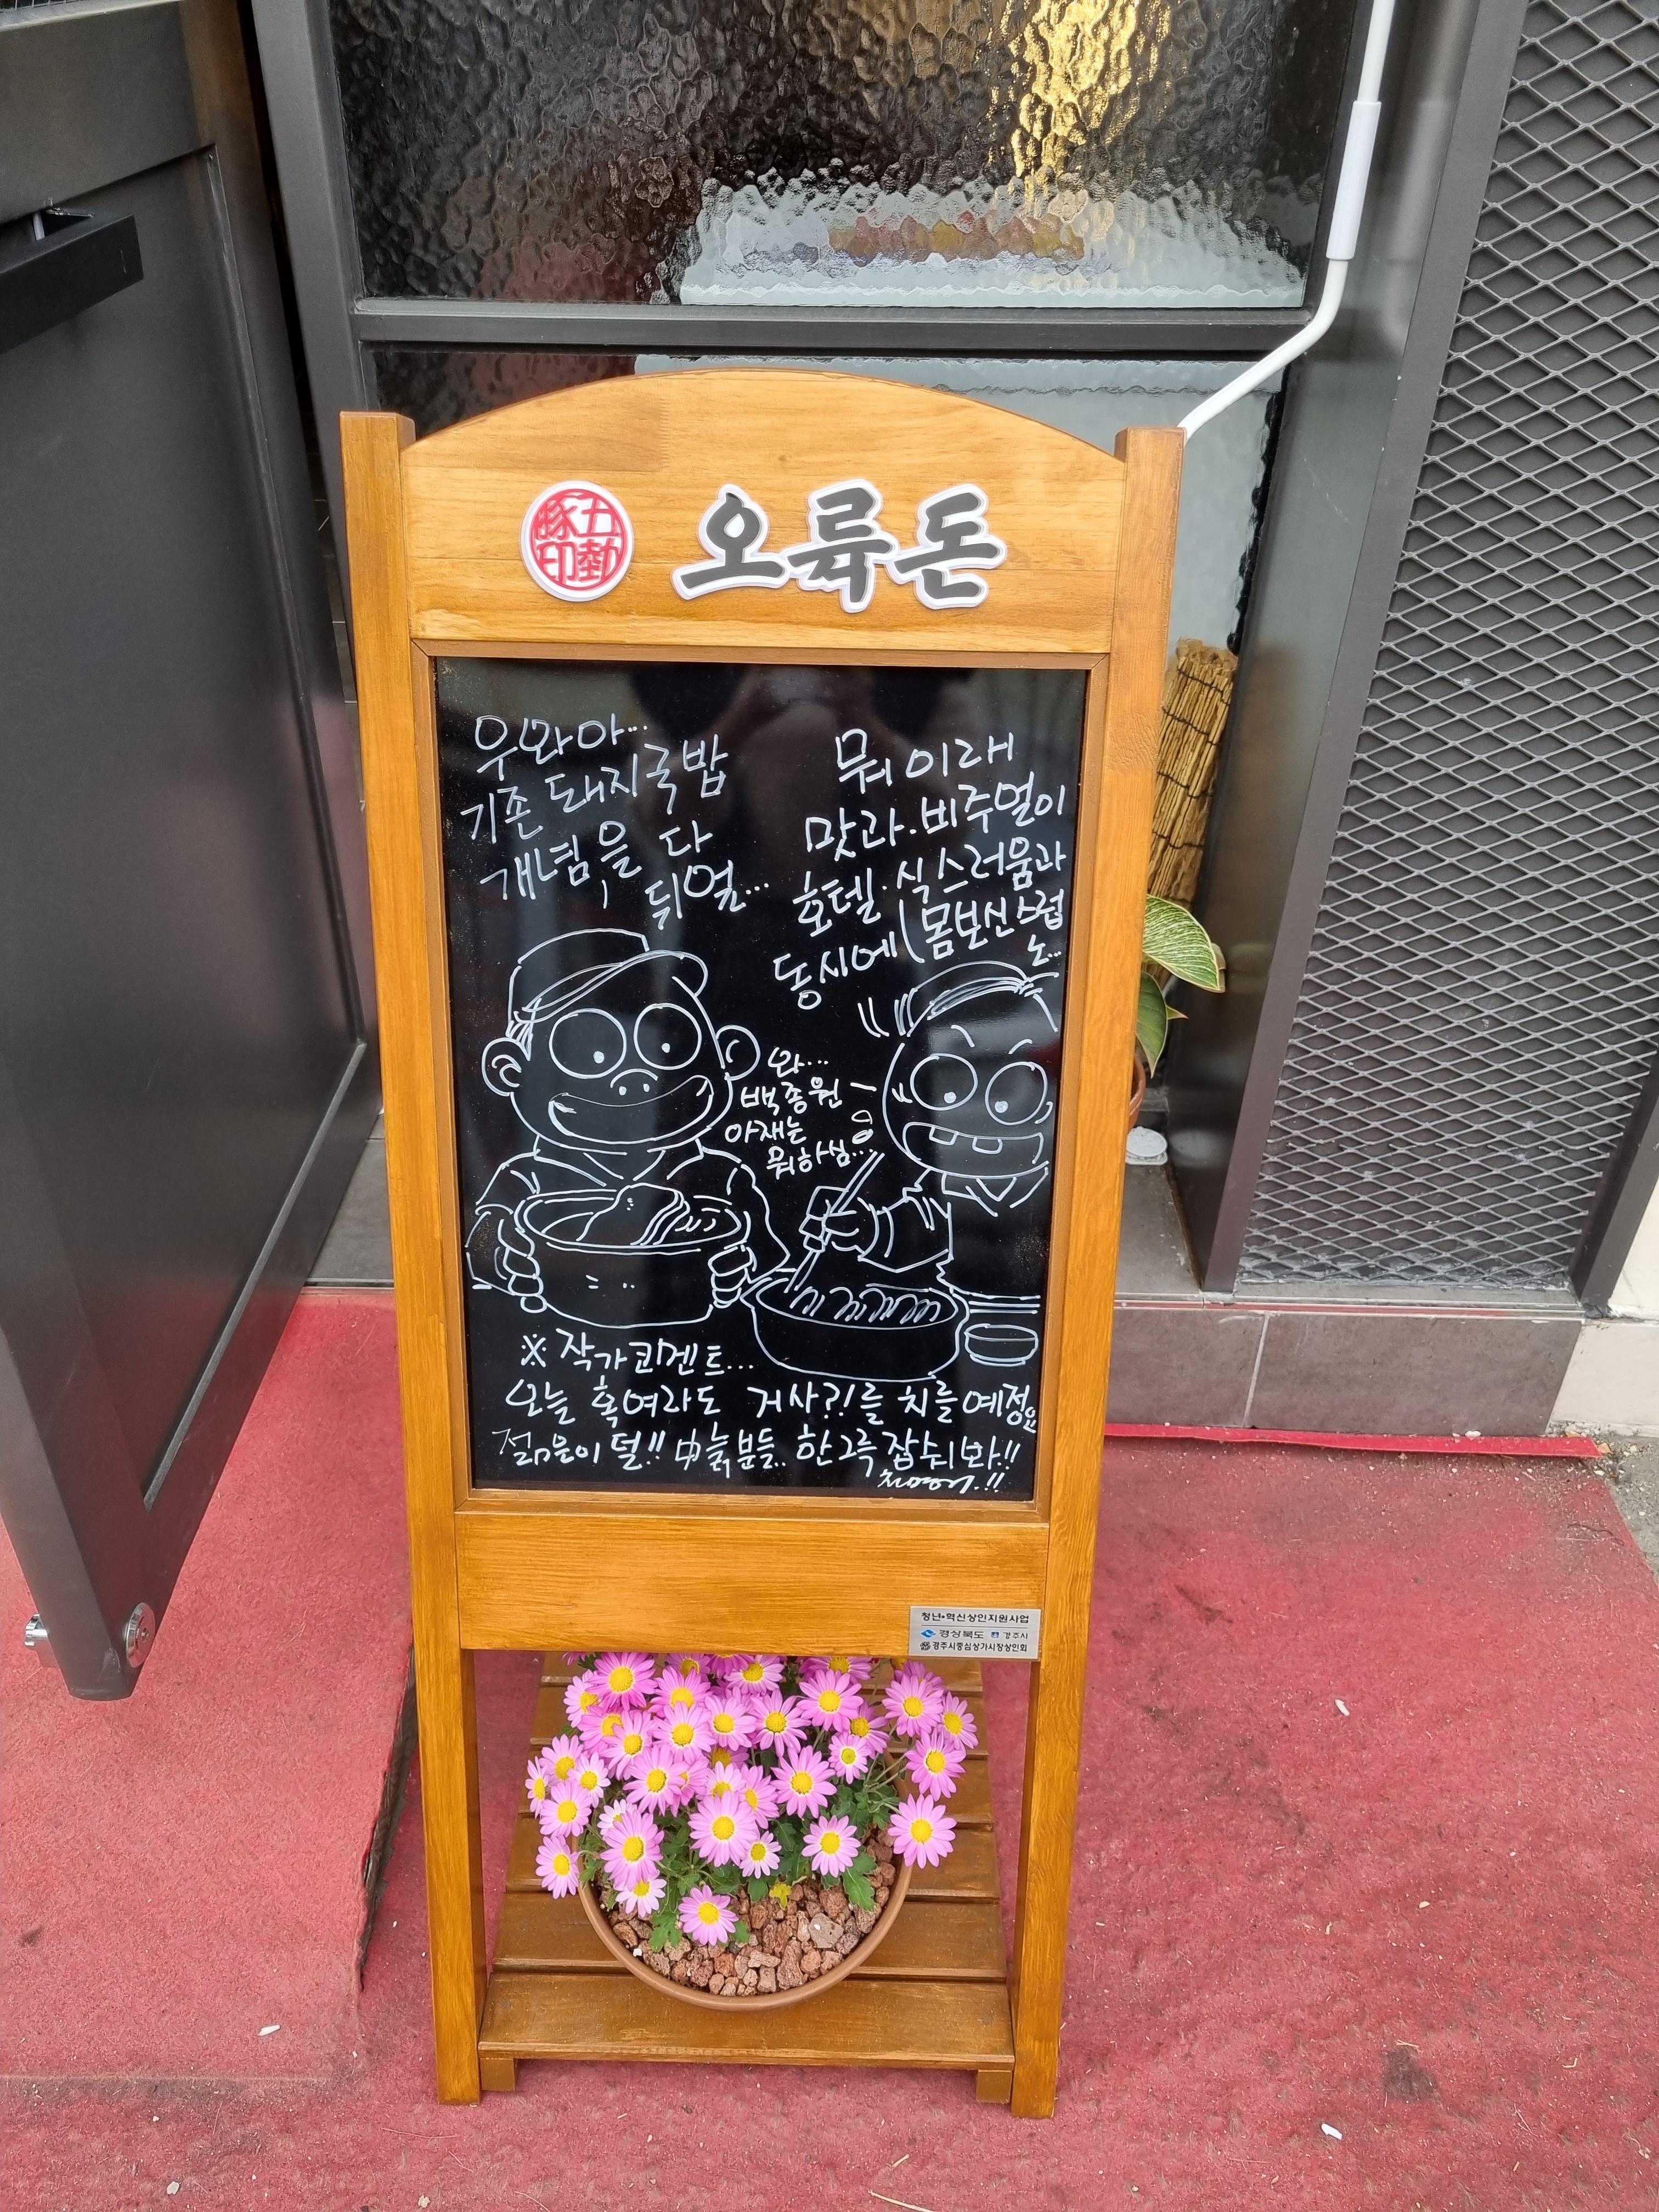 오륙돈
우와아...
기존 돼지국밥
개념을 다
뒤엎...
뭐 이래
맛과.비주얼이
호텔.식스러움과
동시에 몸보신스럽
노..
와...
백종원
아재는
뭐하심...
※ 작가코멘트...
오늘 혹여라도 거사?!를 치를예정인
젊은이 덜!! 中늙분들.. 한그륵 잡숴봐!!
청년•혁신상인지원사업
경상북도 경주시
경주시중심상가시장상인회